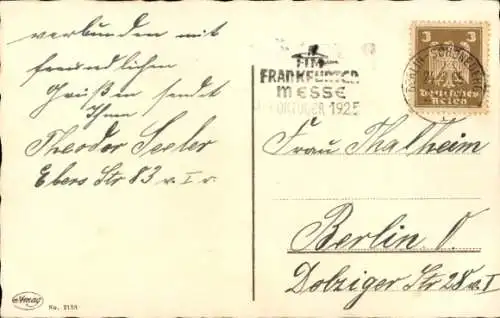 verbunden mit
freundlichen
Grüßen sendet
Ihnen
Theodor Seeler
Ebers Str 83 v. I r.
FRANKFURTER
MESSE
OKTOBER 1925
3 3
Deutsches
Reich
Frau Thalheim
Berlin O.
Dolziger Str 28 v. I
Amag
No. 2138